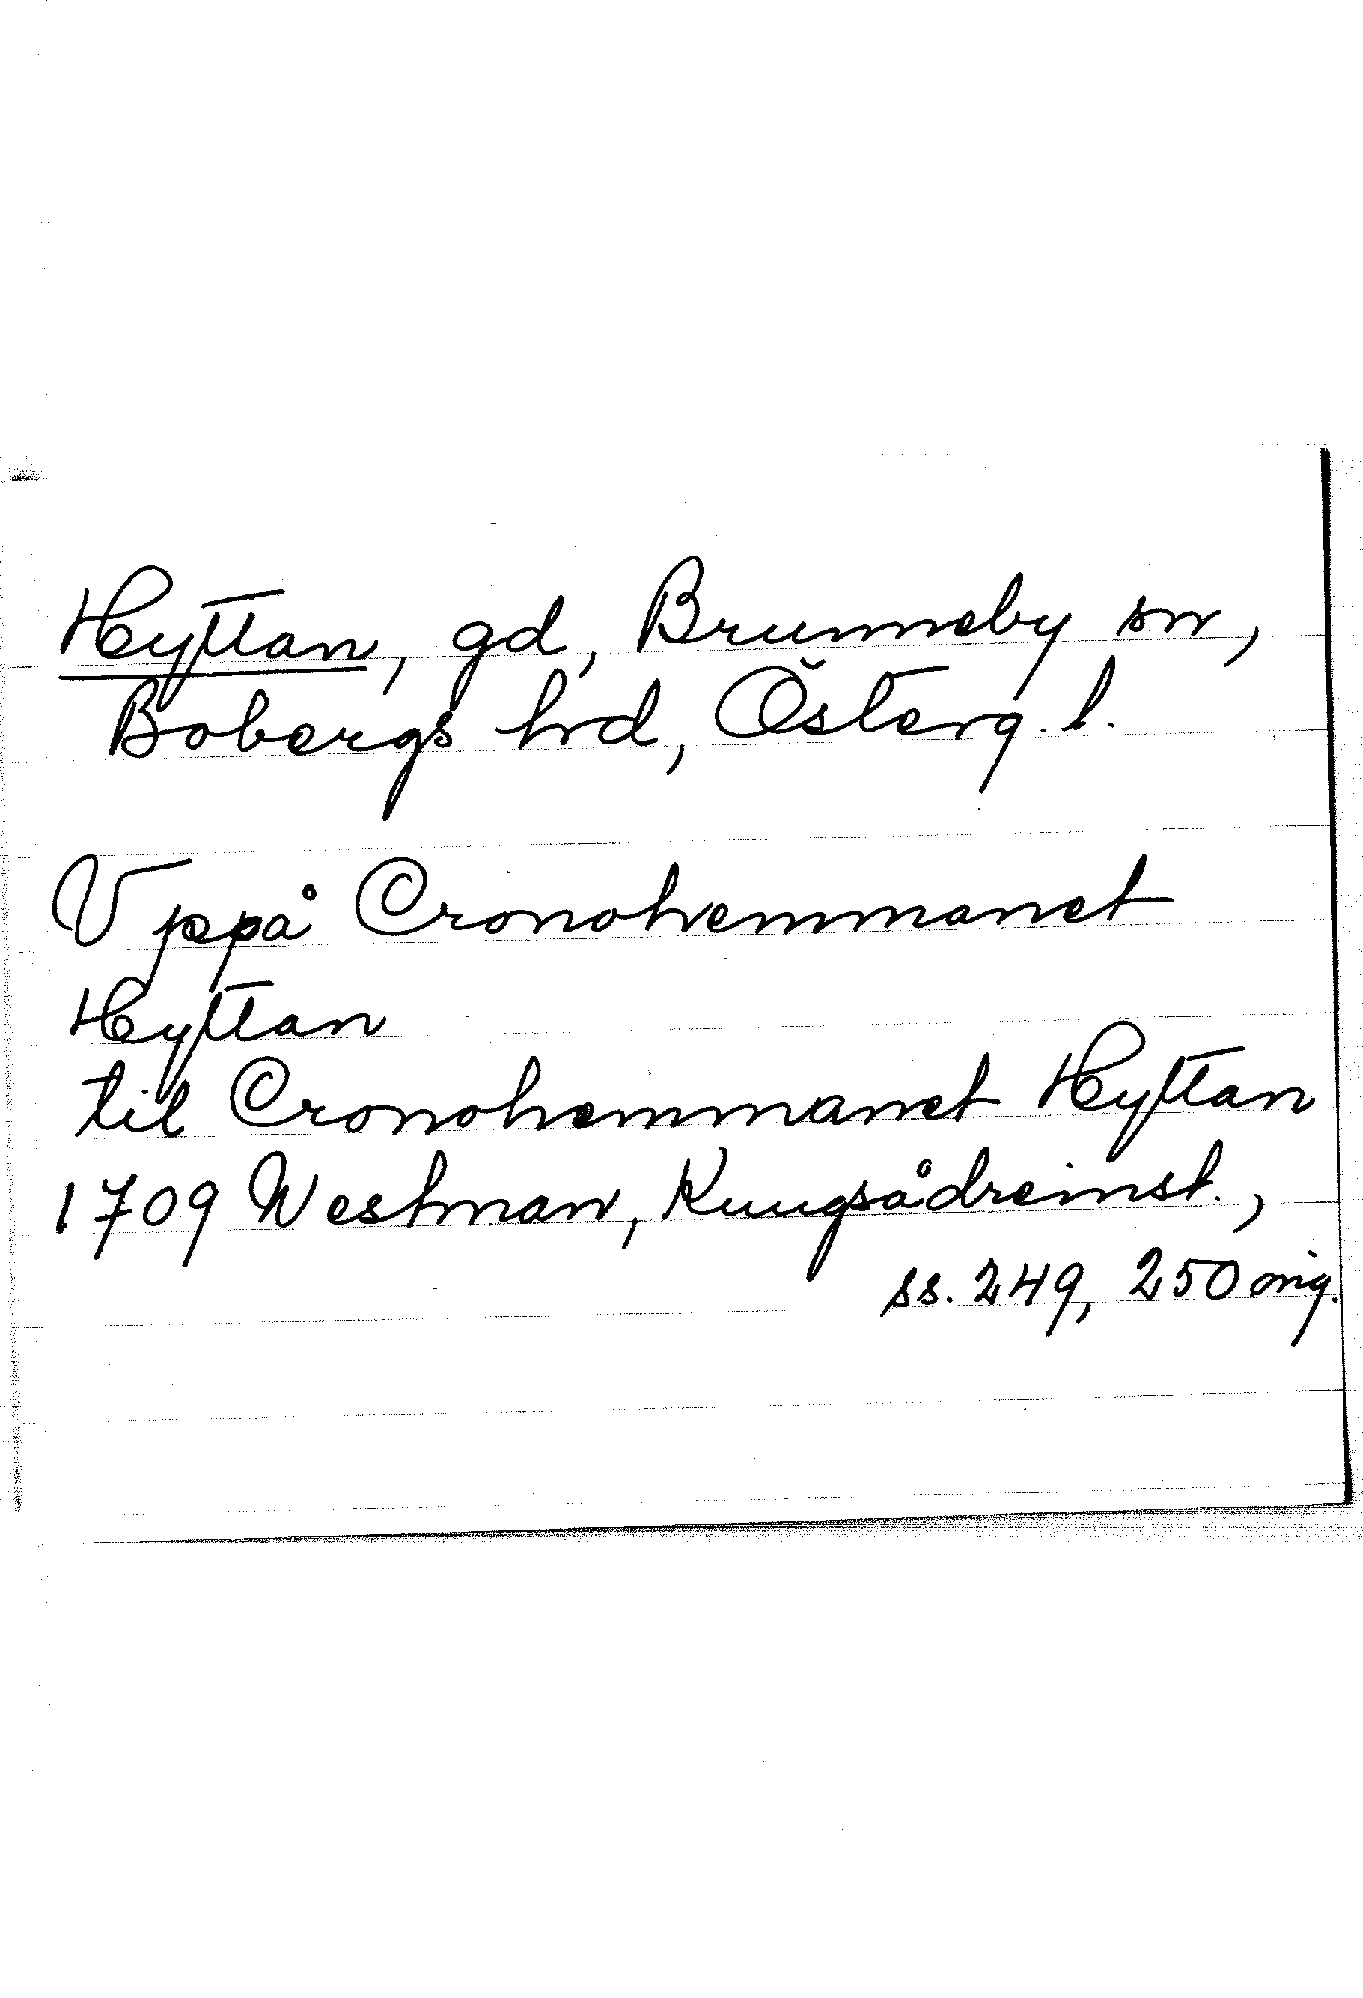 Hyttan, gd, Brunneby sn,
Bobergs hrd, Österg. l.
Vppå Cronohemmanet
Hyttan
til Cronohemmanet Hyttan
1709 Westman, Kungsådreinst.,
ss. 249, 250 orig.